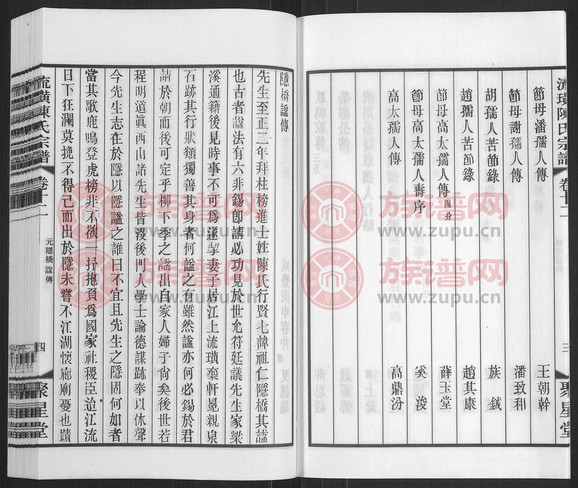 流璜陳氏宗譜
卷十二
三
聚星堂
節母潘孺人傳 王朝幹
節母謝孺人傳 潘致和
胡孺人苦節錄 族鉞
趙孺人苦節錄 趙其康
節母高太孺人傳 薛玉堂
節母高太孺人壽序 奚浚
高太孺人傳 高鼎汾
隱橋諡傳
先生至正二年拜柱榜進士姓陳氏行賢七諱祖仁隱橋其諡
也古者諡法有六非錫卽請必功見於世允符廷議先生家梁
溪通籍後見時事不可爲遂挈妻子居江上流璜奎軒覓親泉
石跡其行狀類獨善其身者何諡之有雖然諡亦何必錫於君
請於朝而後可定乎柳下季之諡出自家人婦子脊矣後世若
程明道眞西山諸先生皆沒後門人學士論德謀跡奉以休聲
今先生志在於隱以隱諡之誰曰不宜且先生之隱固何如者
當其歌鹿鳴登虎榜非不欲一抒抱負爲國家社稷臣迨江流
日下狂瀾莫挽不得已而出於隱未嘗不江湖懷廟廟憂也蹟
流璜陳氏宗譜
卷十二
元隱橋諡傳
四
聚星堂
族譜网
www.zupu.cn
族譜网
www.zupu.cn